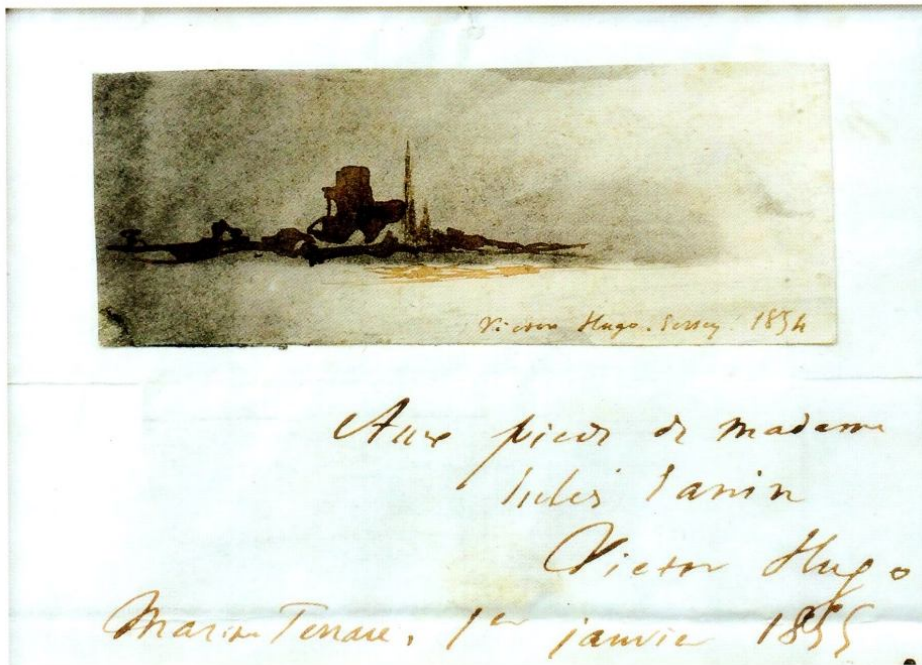 Victor Hugo. Jersey. 1854
Aux pieds de madame
Jules Janin
Victor Hugo
Marine-Terrace, 1er janvier 1855